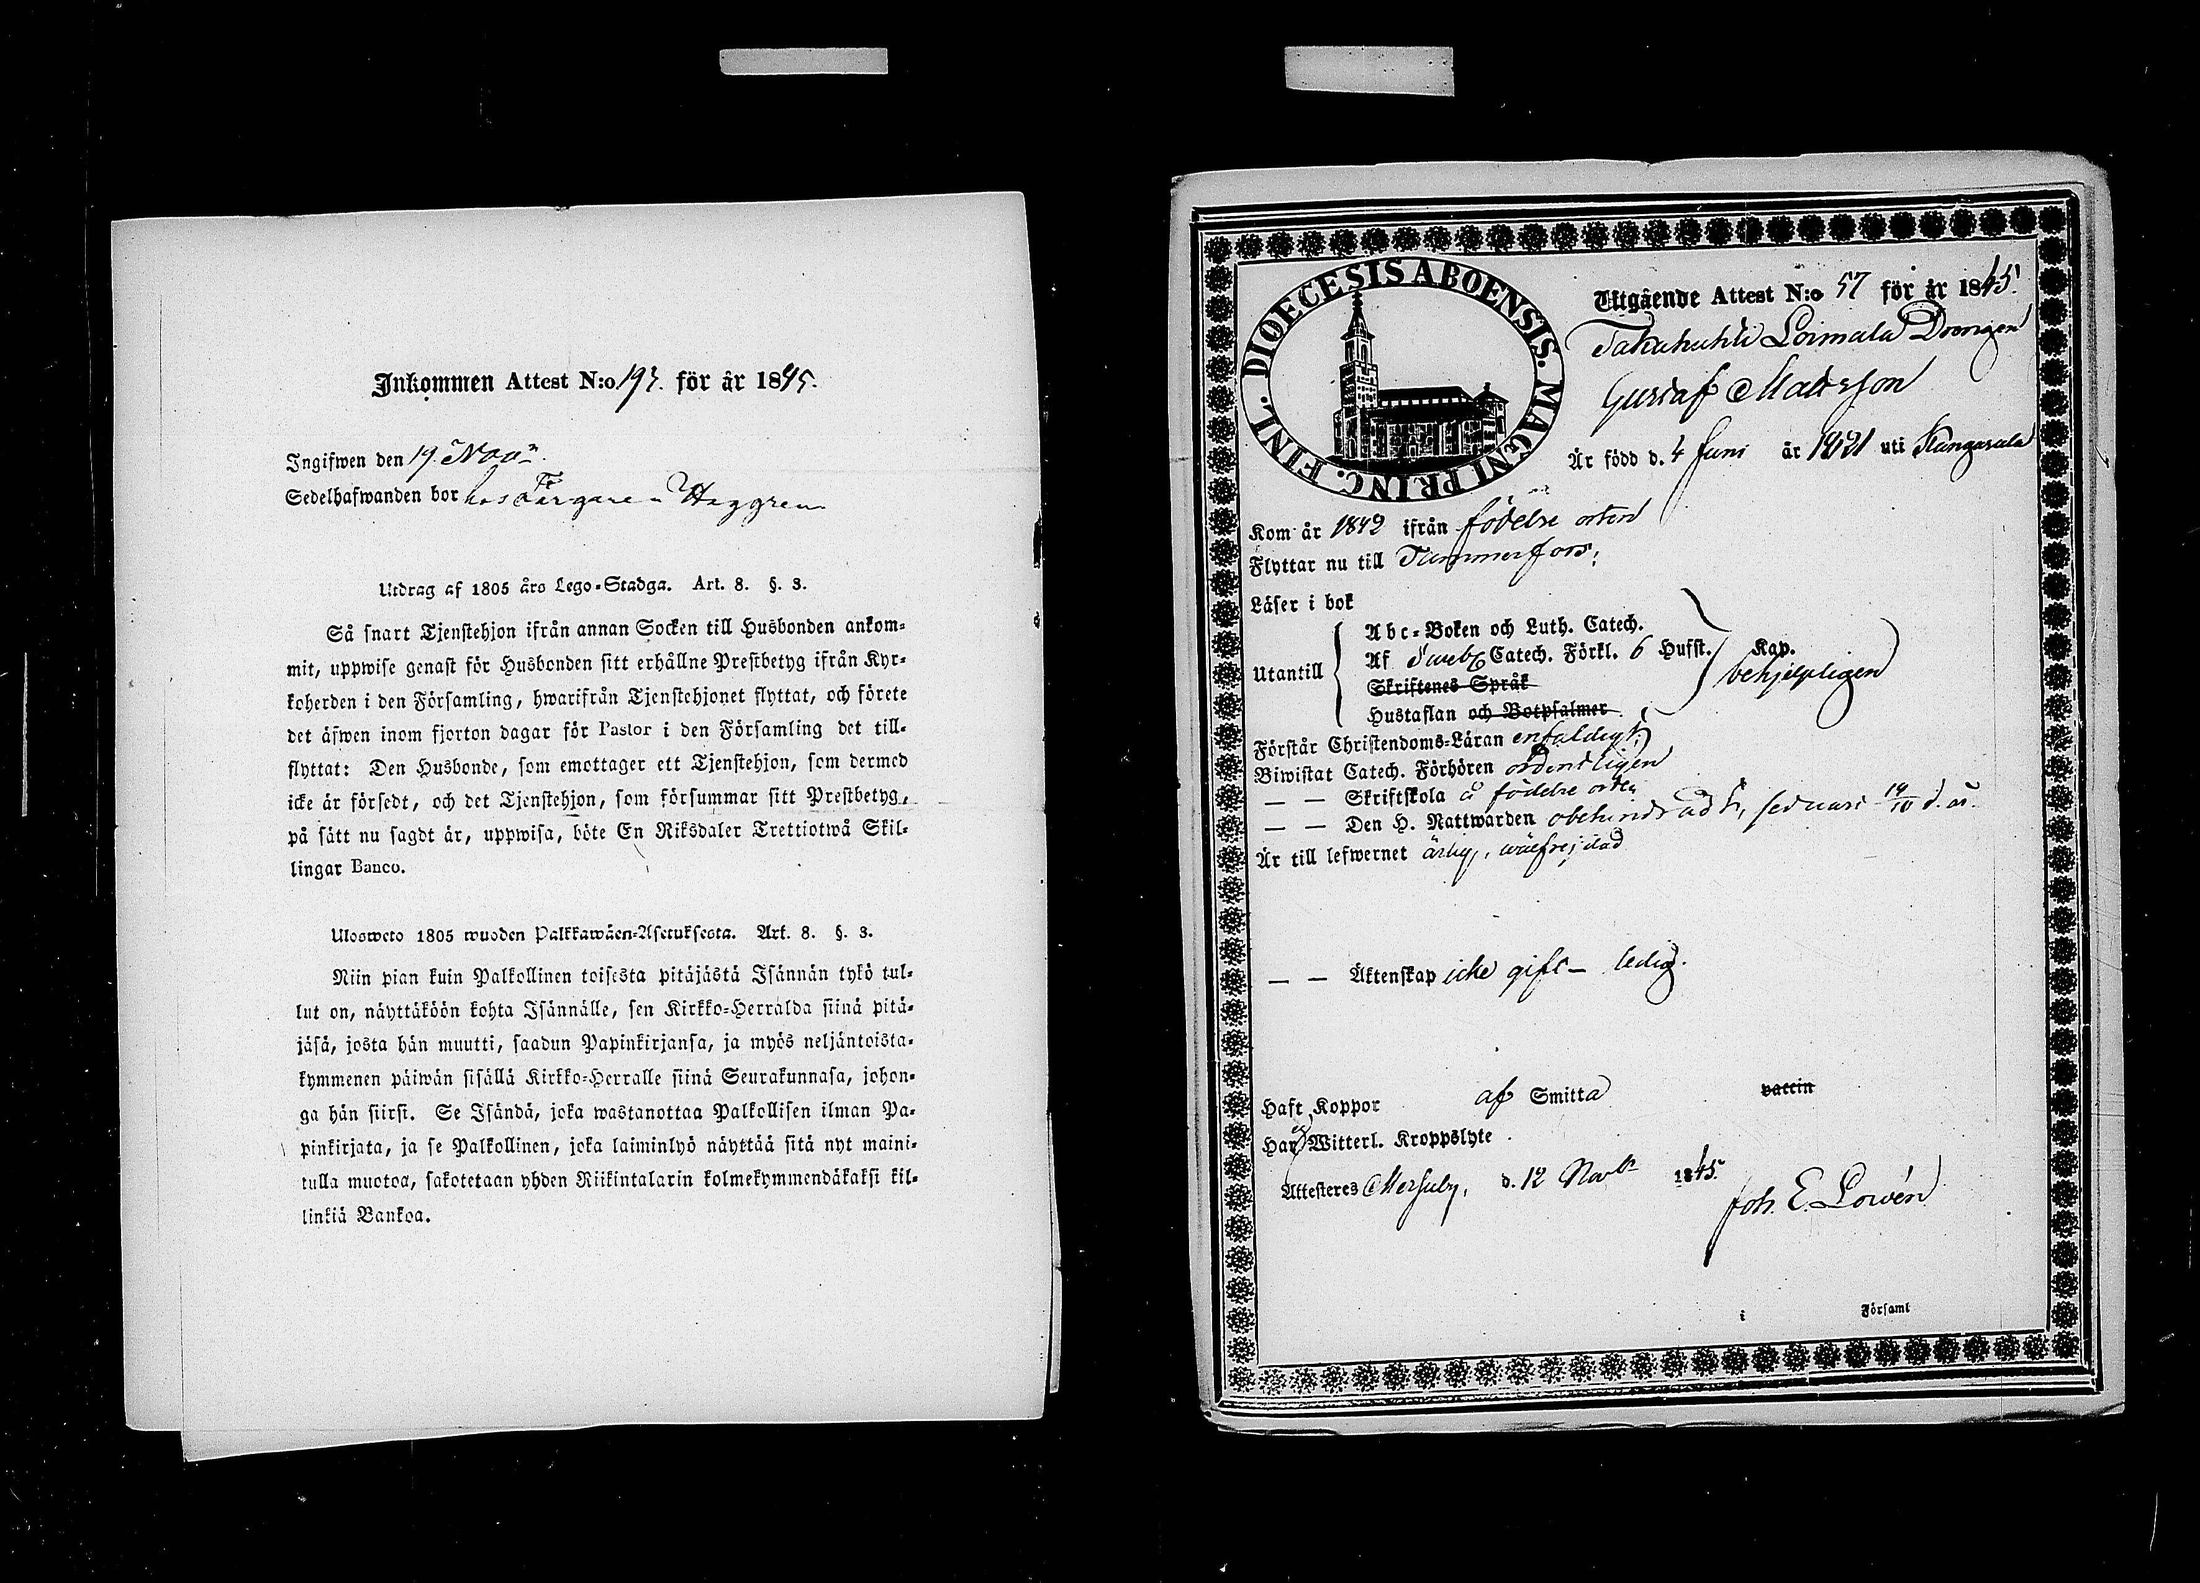 Inkommen Attest N:o 193. för år 1845.
Ingifwen den 19. Nov.
Sedelhafwanden bor hos Färgaren Haggren
Utdrag af 1805 års Lego-Stadga. Art. 8. §. 3.
Så snart Tjenstehjon ifrån annan Socken till Husbonden ankom-
mit, uppwise genast för Husbonden sitt erhållne Prestbetyg ifrån Kyr-
koherden i den Församling, hwarifrån Tjenstehjonet flyttat, och förete
det äfwen inom fjorton dagar för Pastor i den Församling det till-
flyttat: Den Husbonde, som emottager ett Tjenstehjon, som dermed
icke är försedt, och det Tjenstehjon, som försummar sitt Prestbetyg,
på sätt nu sagdt är, uppwisa, böte En Riksdaler Trettiotwå Skil-
lingar Banco.
Ulosweto 1805 wuoden Palkkawäen-Asetuksesta. Art. 8. §. 3.
Niin pian kuin Palkollinen toisesta pitäjästä Isännän tykö tul-
lut on, näyttäköön kohta Isännälle, sen Kirkko-Herralda siinä pitä-
jäsä, josta hän muutti, saadun Papinkirjansa, ja myös neljäntoista-
kymmenen päiwän sisällä Kirkko-Herralle siinä Seurakunnasa, johon-
ga hän siirsi. Se Isändä, joka wastanottaa Palkollisen ilman Pa-
pinkirjata, ja se Palkollinen, joka laiminlyö näyttää sitä nyt maini-
tulla muotoa, sakotetaan yhden Riikintalarin kolmekymmendäkaksi kil-
linkiä Bankoa.
DIOECESIS ABOENSIS. MAGNI PRINC. FINL.
Utgående Attest N:o 57 för år 1845.
Takahuhti Loimala Drengen
Gustaf Matsson
Är född d. 4 Juni år 1821 uti Kangasala
Kom år 1842 ifrån födelse orten
Flyttar nu till Tammerfors;
Läser i bok
Utantill
Abc-Boken och Luth. Catech.
Af Sweb Catech. Förkl. 6 Hufst. Kap.
Skriftenes Språk
Hustaflan och Botpsalmer
behjelpligen
Förstår Christendoms-Läran enfaldigt;
Biwistat Catech. Förhören ordentligen
— — Skriftskola å födelse orten
— — Den H. Nattwarden obehindradt, sednast 19/10 d. å.
Är till lefwernet ärlig, wälfrejdad
— — Äktenskap icke gift – ledig.
Haft Koppor af Smitta vaccin
Har ej Witterl. Kroppslyte
Attesteres Messuby, d. 12 Novbr 1845.
Joh. E. Lowén
i Församl